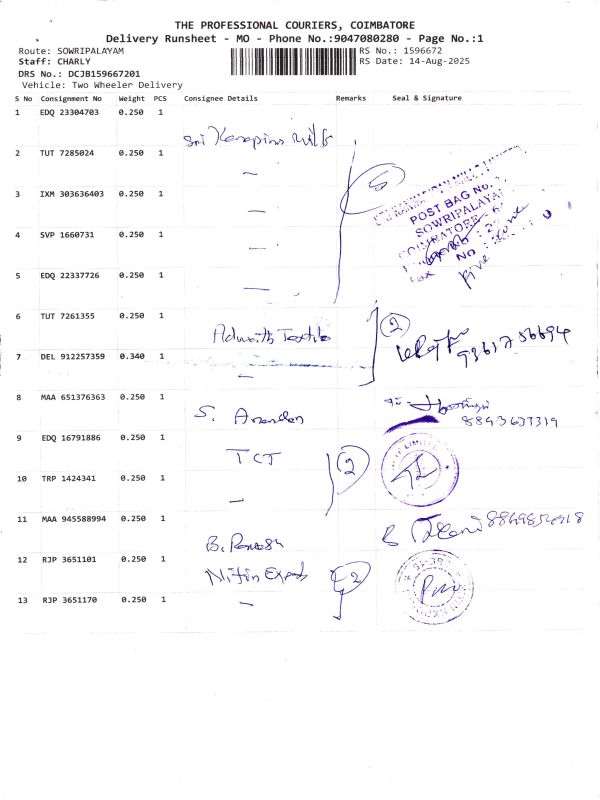 THE PROFESSIONAL COURIERS, COIMBATORE
Delivery Runsheet - MO - Phone No.:9047080280 - Page No.:1
Route: SOWRIPALAYAM RS No.: 1596672
Staff: CHARLY RS Date: 14-Aug-2025
DRS No.: DCJB159667201
Vehicle: Two Wheeler Delivery
S No Consignment No Weight PCS Consignee Details Remarks Seal & Signature
1 EDQ 23304703 0.250 1
Sri
2 TUT 7285024 0.250 1
—
3 IXM 303636403 0.250 1 5
— POST BAG No.
SOWRIPALAYA
4 SVP 1660731 0.250 1
— No :
5 EDQ 22337726 0.250 1
—
6 TUT 7261355 0.250 1
Adwaith Textile 2
7 DEL 912257359 0.340 1
—
8 MAA 651376363 0.250 1
S. Anandan
9 EDQ 16791886 0.250 1
TCT 2 LIMITED
10 TRP 1424341 0.250 1
—
11 MAA 945588994 0.250 1
B.
12 RJP 3651101 0.250 1
Nitin Exports 2
13 RJP 3651170 0.250 1
—